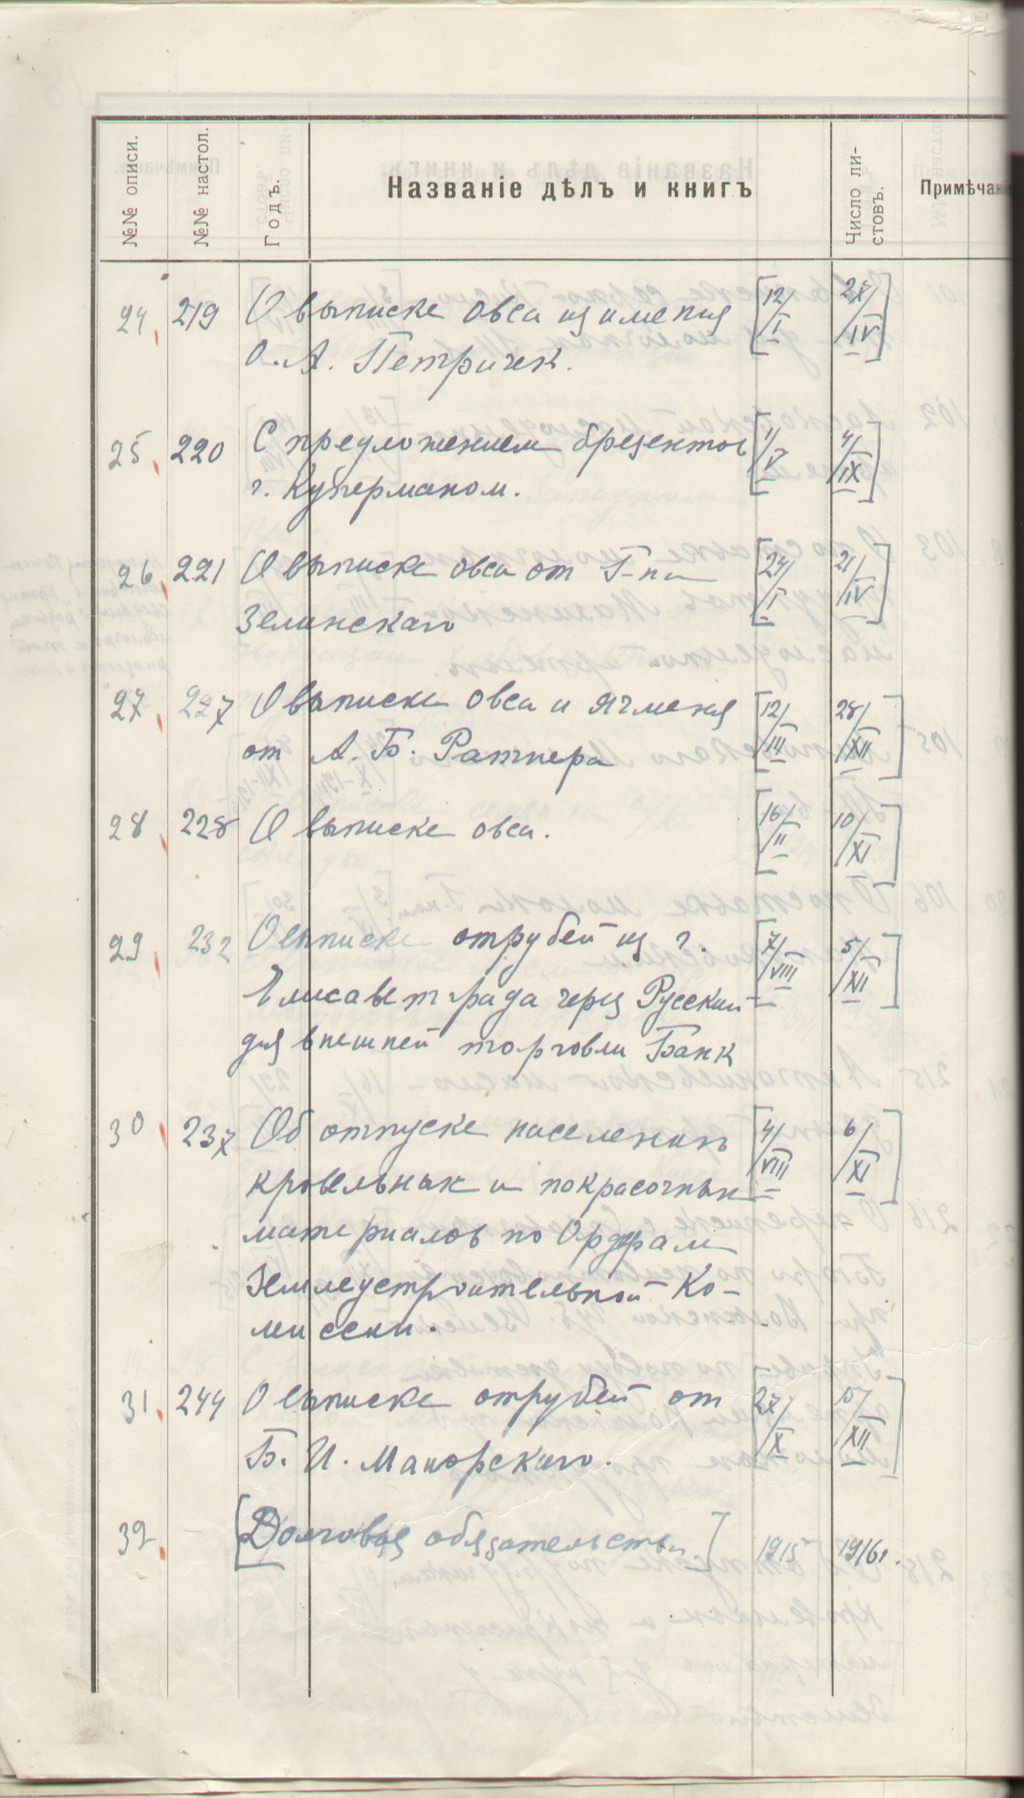 №№ описи.
№№ настол.
Годъ.
Названіе дѣлъ и книгъ
Число ли-
стовъ.
Примѣчан
24, 219 О выписке овса из имения [12/I 27/IV]
О. А. Петричек.
25, 220 С предложением брезентов [1/V 4/IX]
г. Куперманом.
26, 221 О выписке овса от Г-на [24/I 21/IV]
Зелинскаго
27, 227 О выписке овса и ячменя [12/III 28/XII]
от А. Б. Ратнера
28, 228 О выписке овса. [16/II 10/XI]
29, 232 О выписке отрубей из г. [7/VIII 5/XII]
Елисаветграда через Русский
для внешней торговли Банк
30, 237 Об отпуске населению [4/VIII 6/XI]
кровельных и покрасочных
материалов по Ордерам
Землеустроительной Ко-
миссии.
31, 244 О выписке отрубей от [27/X 15/XII]
Б. И. Манорскаго.
32, [Долговыя обязательства] 1915 1916г.